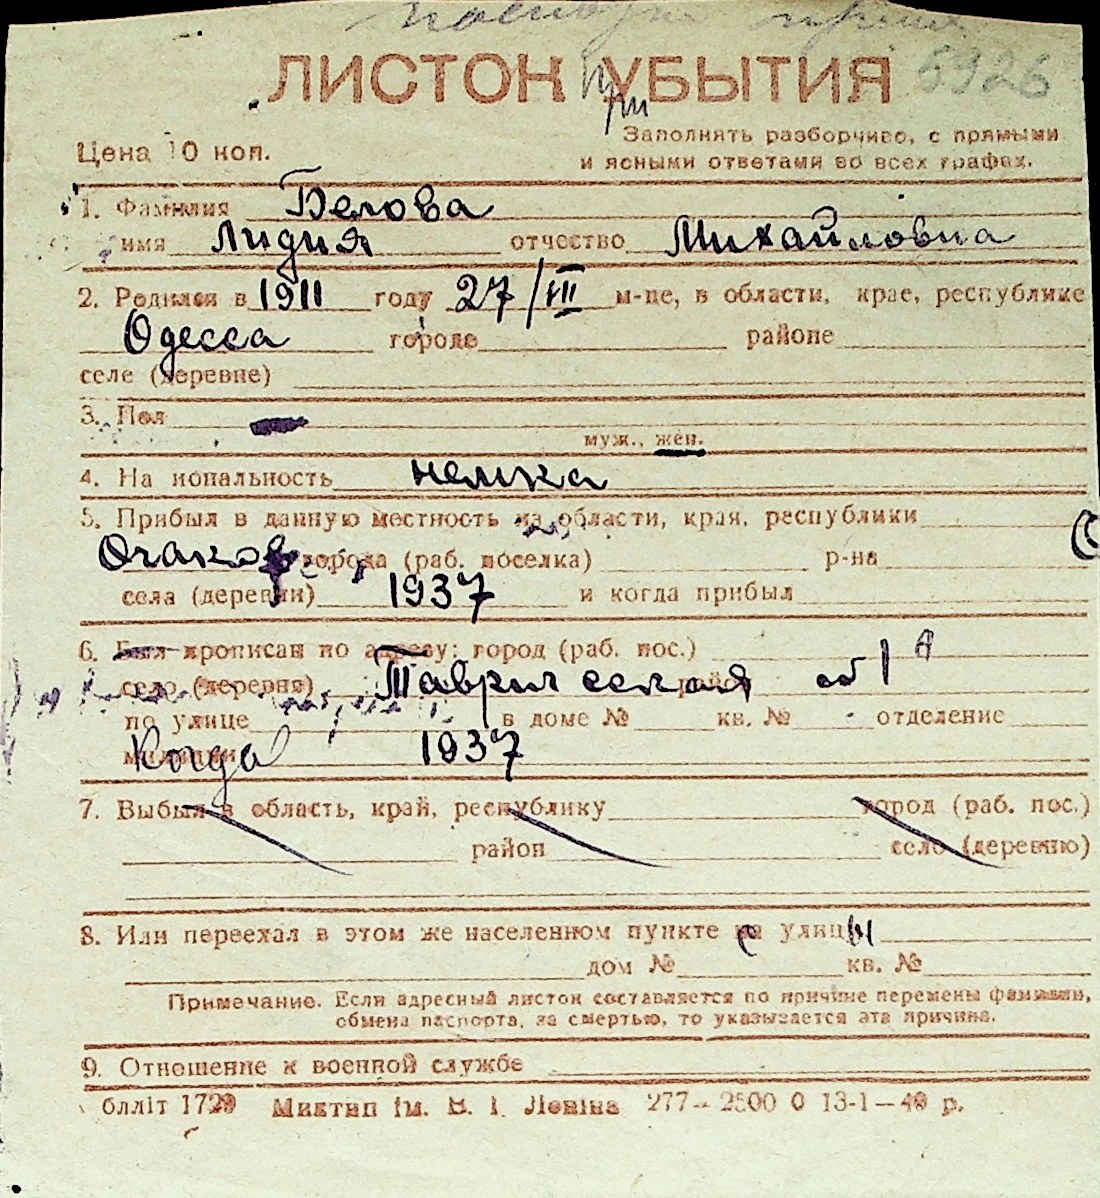 ЛИСТОК УБЫТИЯ 6926
Цена 10 коп.
Заполнять разборчиво, с прямыми
и ясными ответами во всех графах.
1. Фамилия Белова
имя Лидия отчество Михайловна
2. Родился в 1911 году 27/VIII м-це, в области, крае, республике
Одесса городе районе
селе (деревне)
3. Пол
муж., жен.
4. Национальность немка
5. Прибыл в данную местность из области, края, республики
Очаков города (раб. поселка) р-на
села (деревни) 1937 и когда прибыл
6. Был прописан по адресу: город (раб. пос.)
село (деревня) Таврическая 61
по улице в доме № кв. № отделение
милиции Когда 1937
7. Выбыл в область, край, республику город (раб. пос.)
район село (деревню)
8. Или переехал в этом же населенном пункте с улицы
дом № кв. №
Примечание. Если адресный листок составляется по причине перемены фамилии,
обмена паспорта, за смертью, то указывается эта причина.
9. Отношение к военной службе
блліт 1729 Миктип ім. В. І. Леніна 277–2500 0 13-1–40 р.